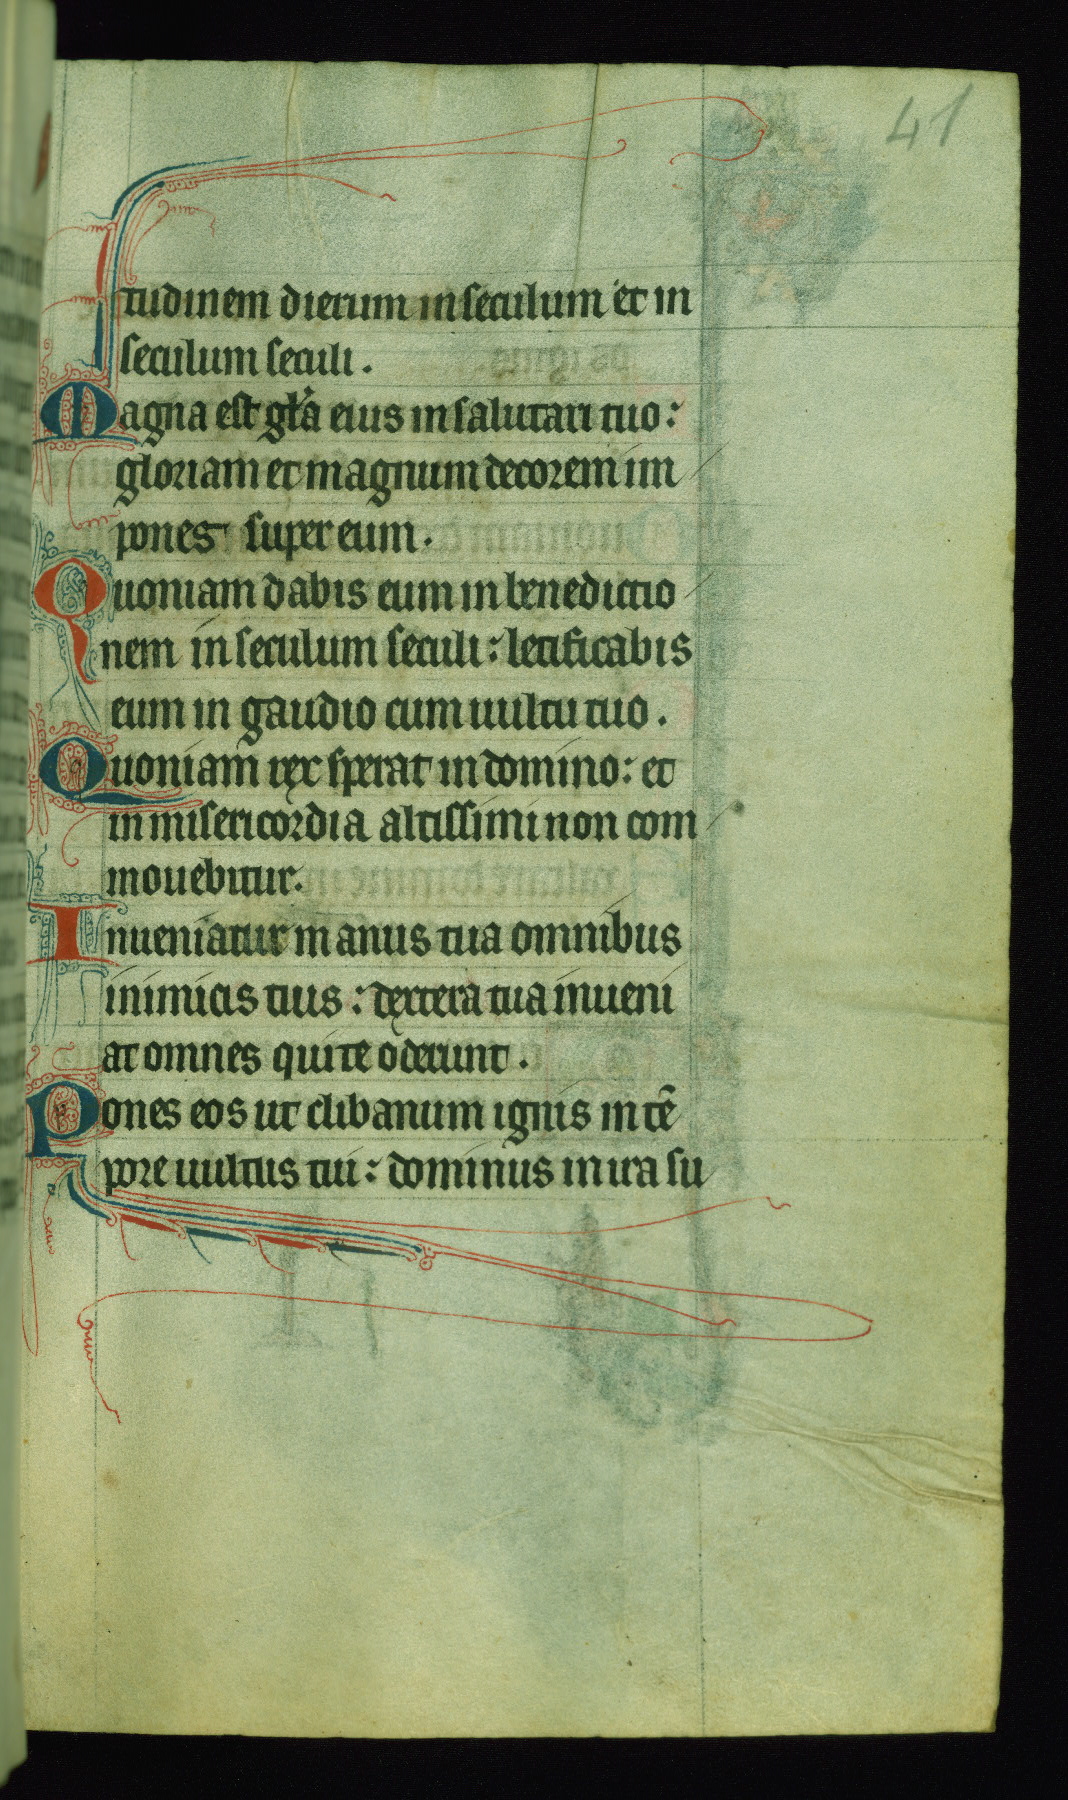 41
tudinem dierum in seculum et in
seculum seculi.
Magna est gl'a eius in salutari tuo:
gloriam et magnum decorem im
pones super eum.
Quoniam dabis eum in benedictio
nem in seculum seculi: letificabis
eum in gaudio cum uultu tuo.
Quoniam rex sperat in domino: et
in misericordia altissimi non com
mouebitur.
Inueniatur manus tua omnibus
inimicis tuis: dextera tua inueni
at omnes qui te oderunt.
Pones eos ut clibanum ignis in tē
pore uultus tui: dominus in ira su